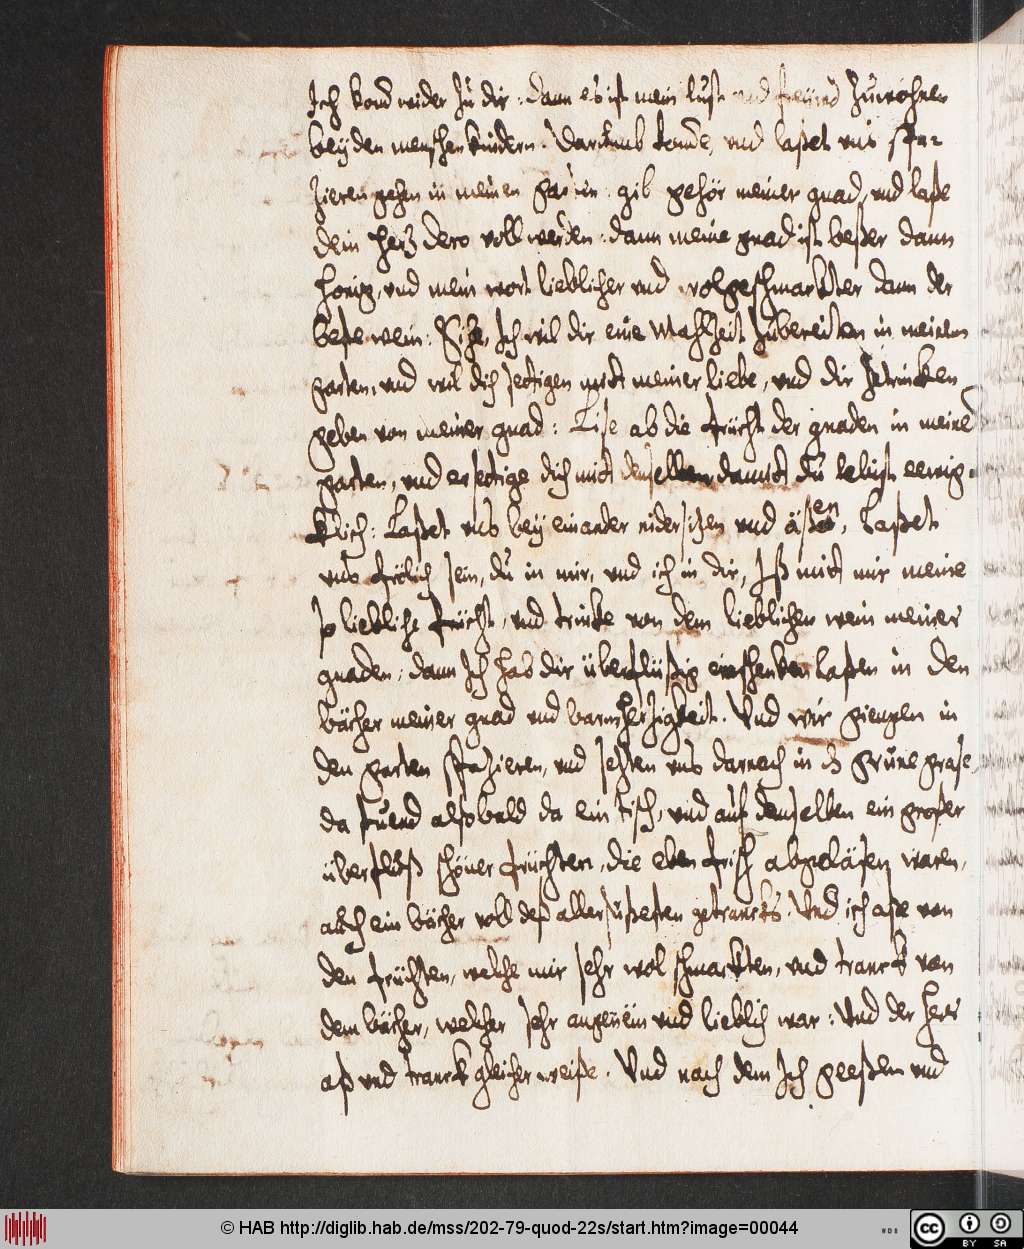 Ich komē wider zu dir: dann es ist mein lust und freüwd zuwohnen
beÿ den menschen kindern. Darumb komē, vnd laßet vns spa-
zieren gehen in meinen garten: gib gehör meiner gnad, vnd laße
dein hertz dero voll werden: dann meine gnad ist beßer dann
honig, vnd mein wort lieblicher vnd wolgeschmarkter dann der
beste wein: Sihe, Ich wil dir eine Mahlzeit zubereiten in meinem
garten, vnd wil dich settigen mitt meiner liebe, vnd dir zetrinken
geben von meiner gnad: Lise ab die frücht der gnaden in meinē
garten, vnd ersettige dich mitt denselben damitt du lebist eewig-
klich: Laßet vns beÿ einander nidersitzen vnd äßen, Laßet
vns frölich sein, du in mir, vnd ich in dir, Iß mitt mir meine
so liebliche frücht, vnd trinke von dem lieblichen wein meiner
gnaden: dann Ich hab dir überflüßig einschenken laßen in den
bächer meiner gnad vnd barmhertzigkeit. Vnd wir giengen in
den garten spazieren, vnd setzten vns darnach in dz grüne graße
da stuend alsobald da ein tisch, vnd auf demselben ein großer
überfluß schöner früchten, die eben frisch abgeläsen waren,
auch ein bächer voll deß allersüßesten getrancks. Vnd ich aße von
den früchten, welche mir sehr wol schmarkten, vnd tranck von
dem bächer, welcher sehr angenem vnd lieblich war: Vnd der Herr
aß vnd tranck gleicher weiße. Vnd nach dem Ich geeßen vnd
© HAB http://diglib.hab.de/mss/202-79-quod-22s/start.htm?image=00044
WDB
CC BY SA